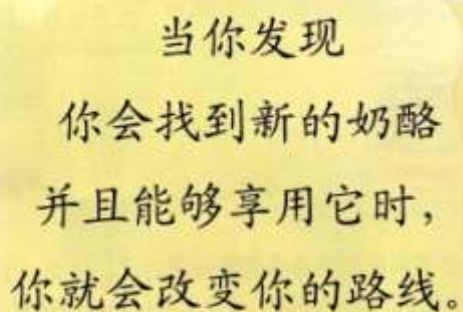 当你发现
你会找到新的奶酪
并且能够享用它时，
你就会改变你的路线。